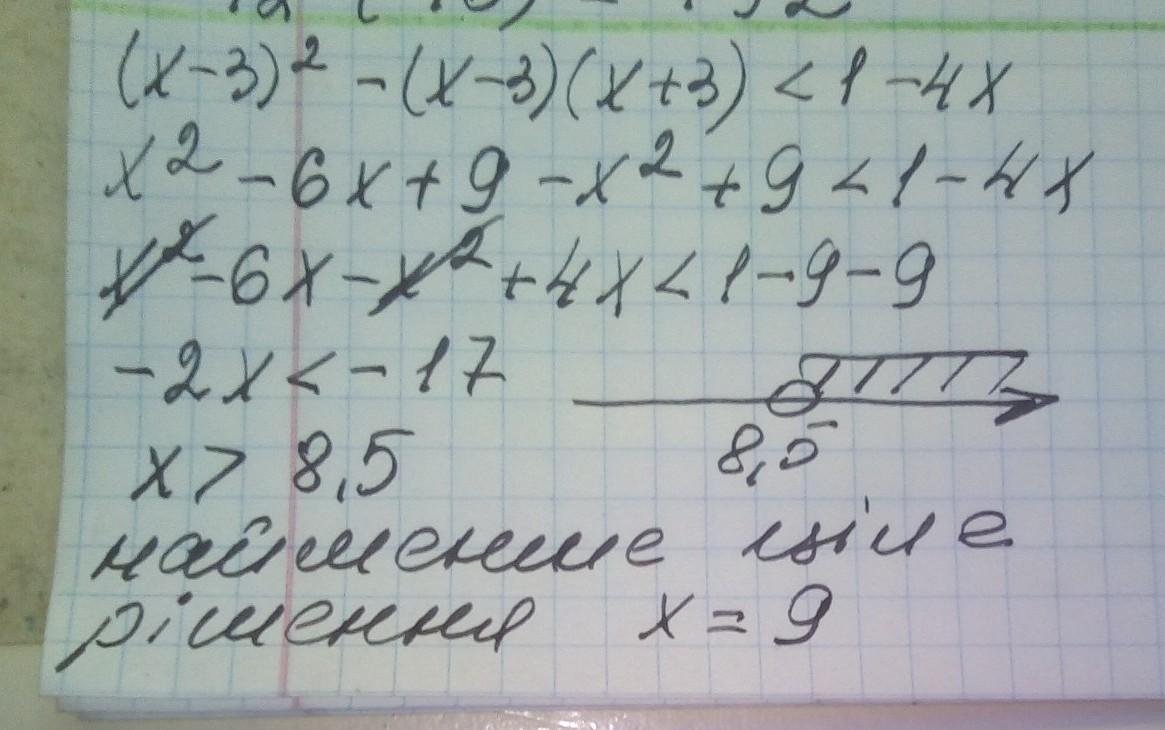 (x-3)² - (x-3)(x+3) < 1 - 4x
x² - 6x + 9 - x² + 9 < 1 - 4x
x² - 6x - x² + 4x < 1 - 9 - 9
-2x < -17
x > 8,5
8,5
найменше ціле
рішення x = 9